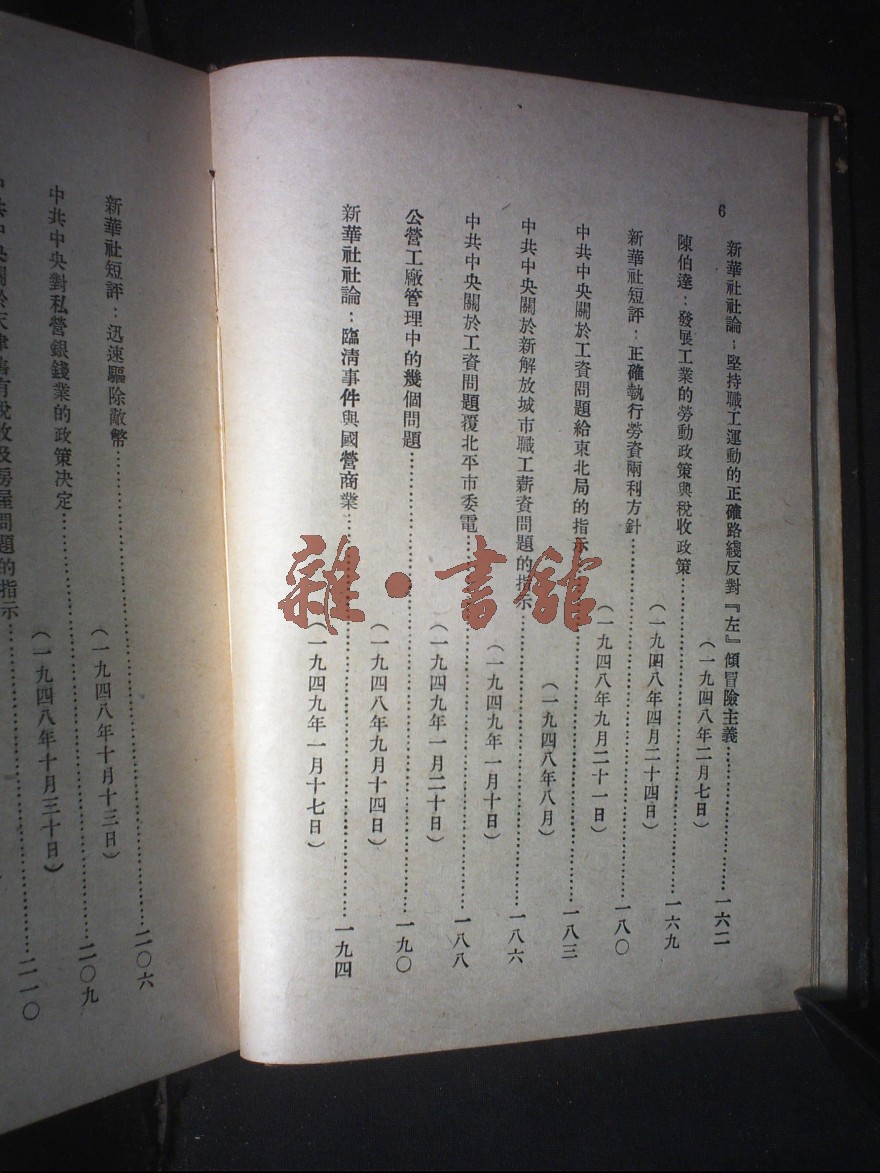 6
新華社社論：堅持職工運動的正確路綫反對『左』傾冒險主義…………一六二
（一九四八年二月七日）
陳伯達：發展工業的勞動政策與稅收政策…………一六九
（一九四八年四月二十四日）
新華社短評：正確執行勞資兩利方針…………一八〇
（一九四八年九月二十一日）
中共中央關於工資問題給東北局的指示…………一八三
（一九四八年八月）
中共中央關於新解放城市職工薪資問題的指示…………一八六
（一九四九年一月十日）
中共中央關於工資問題覆北平市委電…………一八八
（一九四九年一月二十日）
公營工廠管理中的幾個問題…………一九〇
（一九四八年九月十四日）
新華社社論：臨清事件與國營商業…………一九四
（一九四九年一月十七日）
新華社短評：迅速驅除敵幣…………二〇六
（一九四八年十月十三日）
中共中央對私營銀錢業的政策决定…………二〇九
（一九四八年十月三十日）
中共中央關於天津舊有稅收及房屋問題的指示…………二一〇
雜·書舘